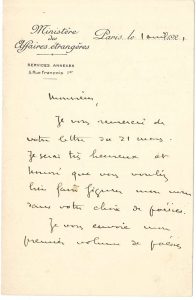 Ministère
des
Affaires étrangères
Paris, le 1 avril 1921
SERVICES ANNEXES
5, Rue François 1er
Monsieur,
Je vous remercie de
votre lettre du 21 mars.
Je serai très heureux et
honoré que vous vouliez
bien faire figurer mon nom
dans votre choix de poésies.
Je vous envoie mon
premier volume de poésies